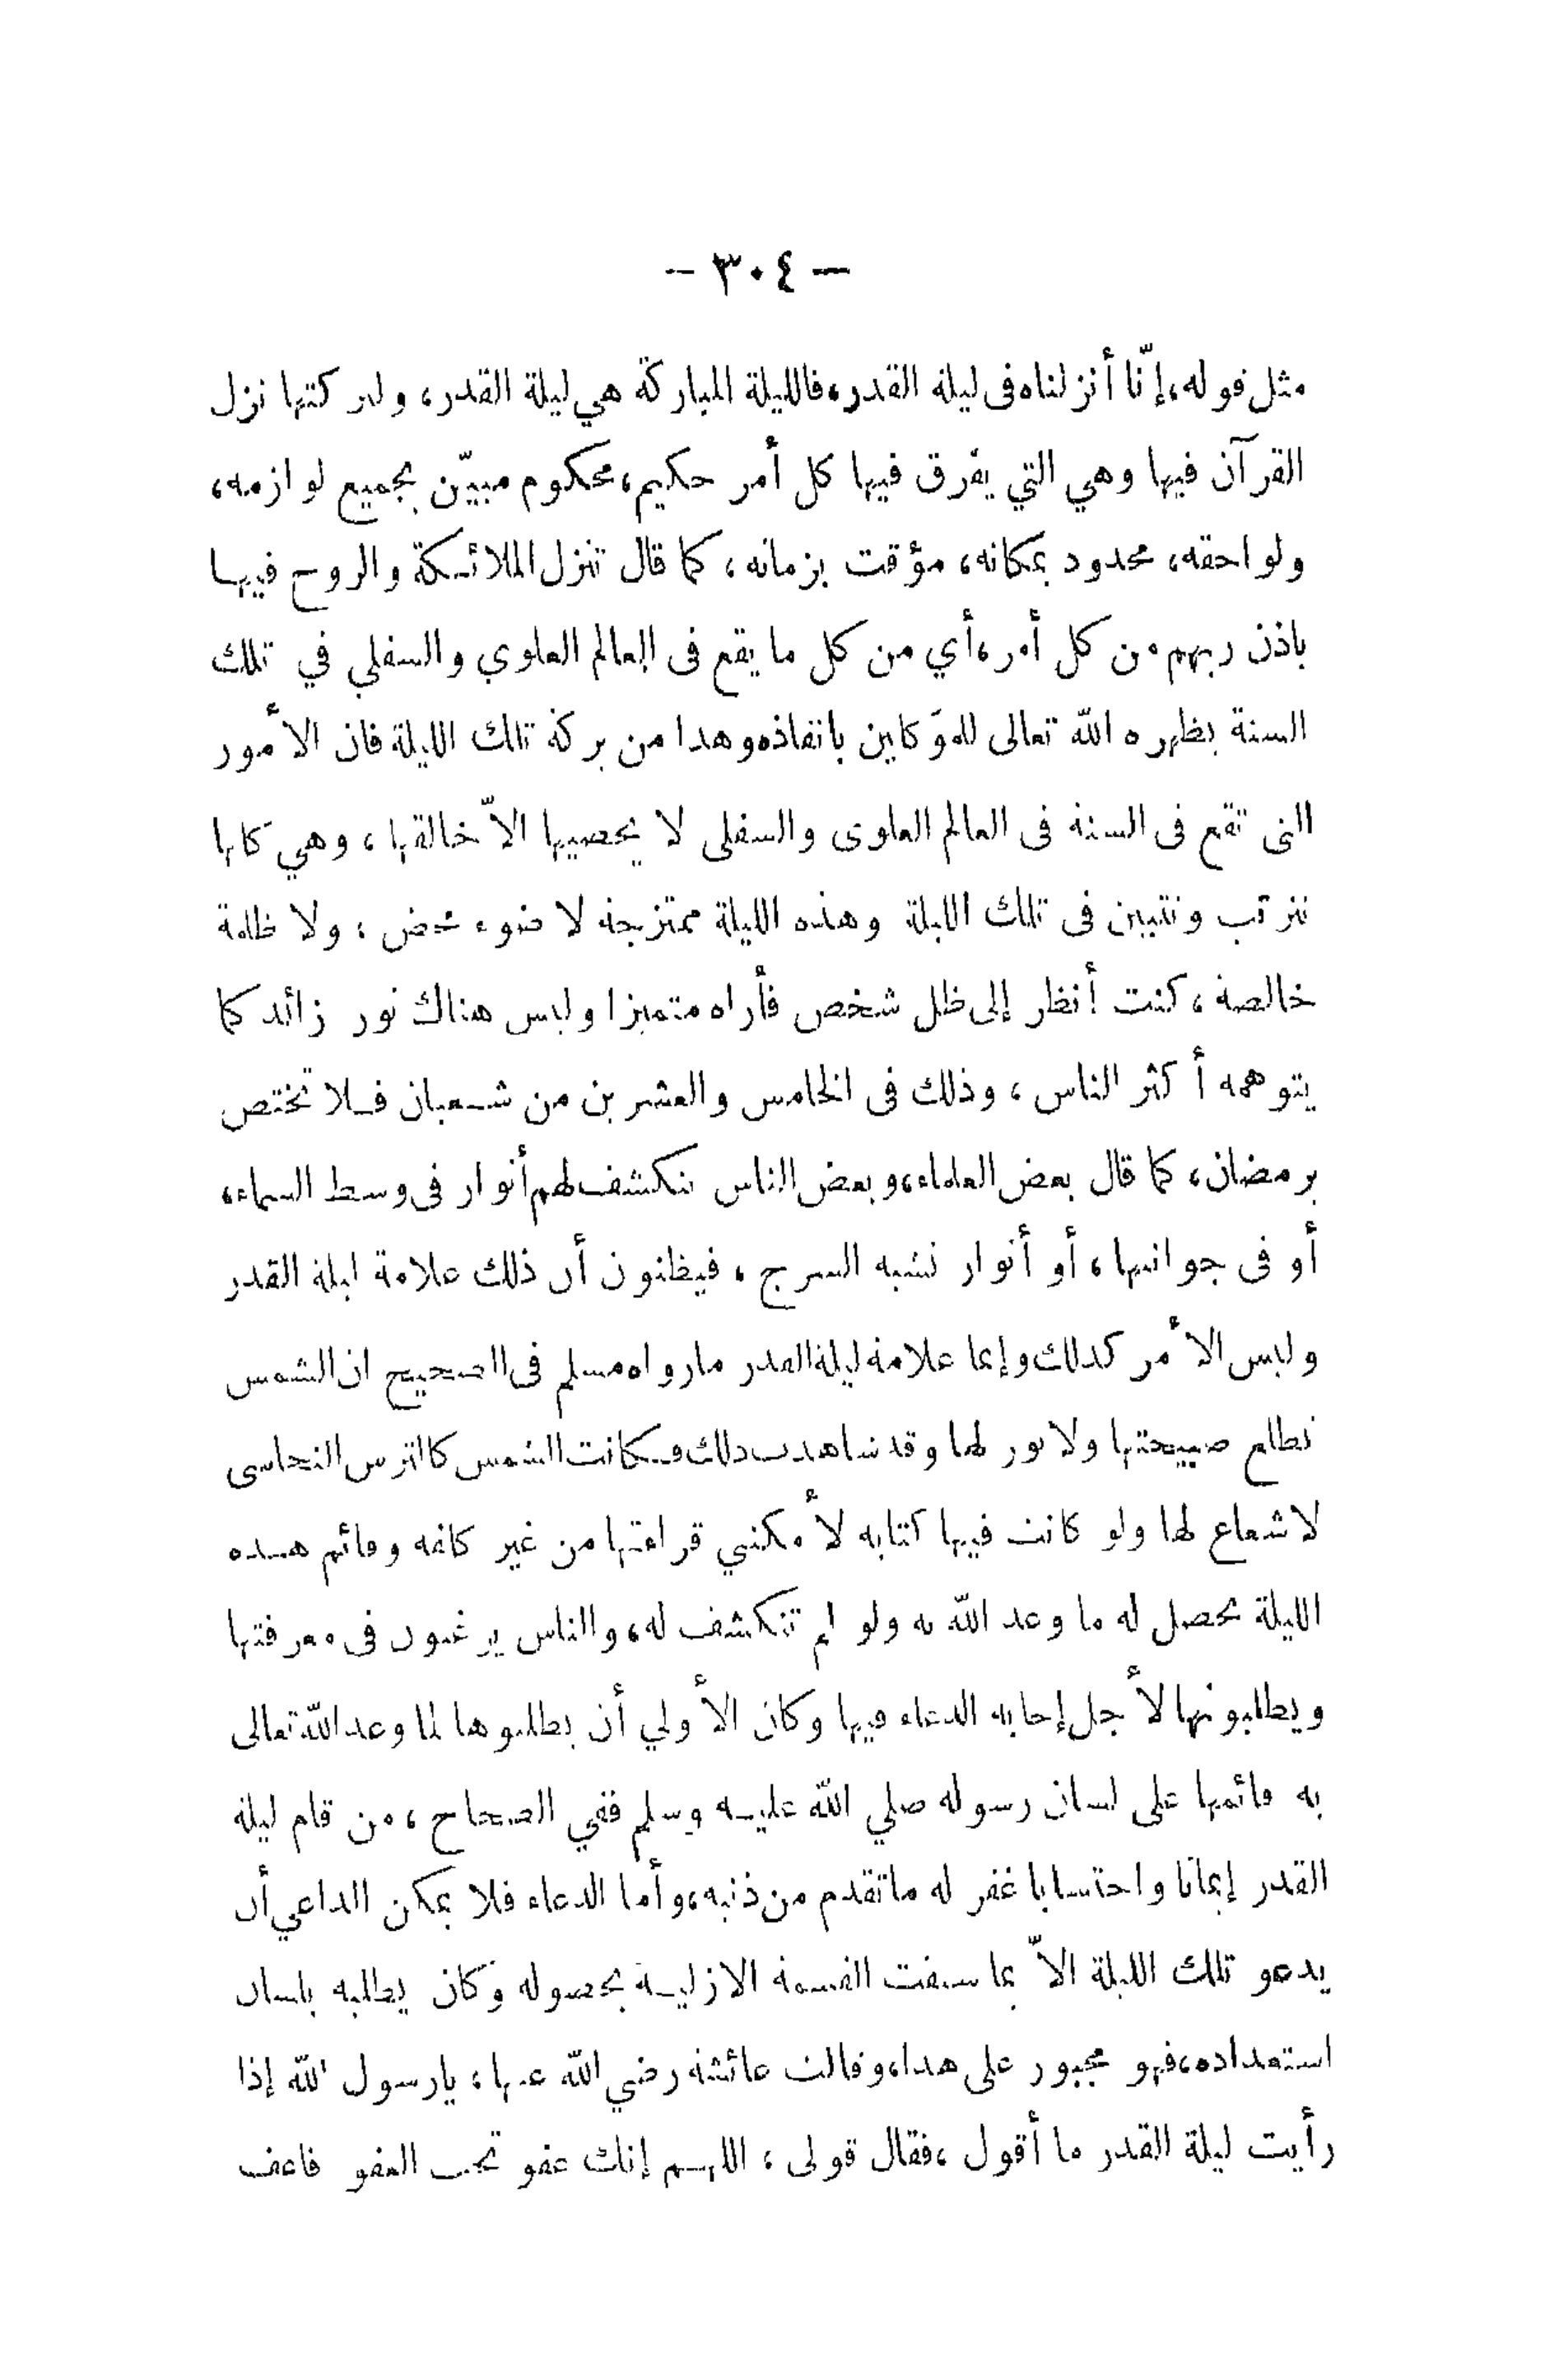 — ٣٠٤ —
مثل قوله، إنّا أنزلناه فى ليلة القدر، فالليلة المباركة هي ليلة القدر، ولبركتها نزل
القرآن فيها وهي التي يفرق فيها كل أمر حكيم، محكوم مبيّن بجميع لوازمه،
ولواحقه، محدود بمكانه، مؤقت بزمانه، كما قال تنزل الملائكة والروح فيها
باذن ربهم من كل أمر، أي من كل ما يقع فى العالم العلوي والسفلي في تلك
السنة يظهره الله تعالى للموَكلين بانفاذه وهذا من بركة تلك الليلة فان الأمور
التى تقع فى السنة فى العالم العلوى والسفلى لا يحصيها الاّ خالقها، وهي كلها
تترتب وتتبين فى تلك الليلة وهذه الليلة ممتزجة لا ضوء محض، ولا ظلمة
خالصة، كنت أنظر إلى ظل شخص فأراه متميزا وليس هناك نور زائد كما
يتوهمه أكثر الناس، وذلك فى الخامس والعشرين من شعبان فلا تختص
برمضان، كما قال بعض العلماء، وبعض الناس تنكشف لهم أنوار فى وسط السماء،
أو فى جوانبها، أو أنوار تشبه السرج، فيظنون أن ذلك علامة ليلة القدر
وليس الأمر كذلك وإنما علامة ليلة القدر ما رواه مسلم فى الصحيح ان الشمس
تطلع صبيحتها ولا نور لها وقد شاهدت ذلك فكانت الشمس كالترس النحاسى
لا شعاع لها ولو كانت فيها كتابة لأمكنني قراءتها من غير كلفة وقائم هذه
الليلة يحصل له ما وعد الله به ولو لم تنكشف له، والناس يرغبون فى معرفتها
ويطلبونها لأجل إجابة الدعاء فيها وكان الأولي أن يطلبوها لما وعد الله تعالى
به قائمها على لسان رسوله صلي الله عليه وسلم ففي الصحاح، من قام ليلة
القدر إيمانا واحتسابا غفر له ما تقدم من ذنبه، وأما الدعاء فلا يمكن الداعي أن
يدعو تلك الليلة الاّ بما سبقت القسمة الازلية بحصوله وكان يطلبه بلسان
استعداده، فهو مجبور على هذا، وقالت عائشة رضي الله عنها، يا رسول الله إذا
رأيت ليلة القدر ما أقول، فقال قولى، اللهم إنك عفو تحب العفو فاعف